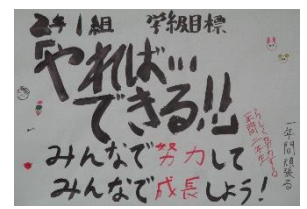 2年1組 学級目標
「やれば…
できる!!」
みんなで努力して
みんなで成長しよう!
一年間頑張る